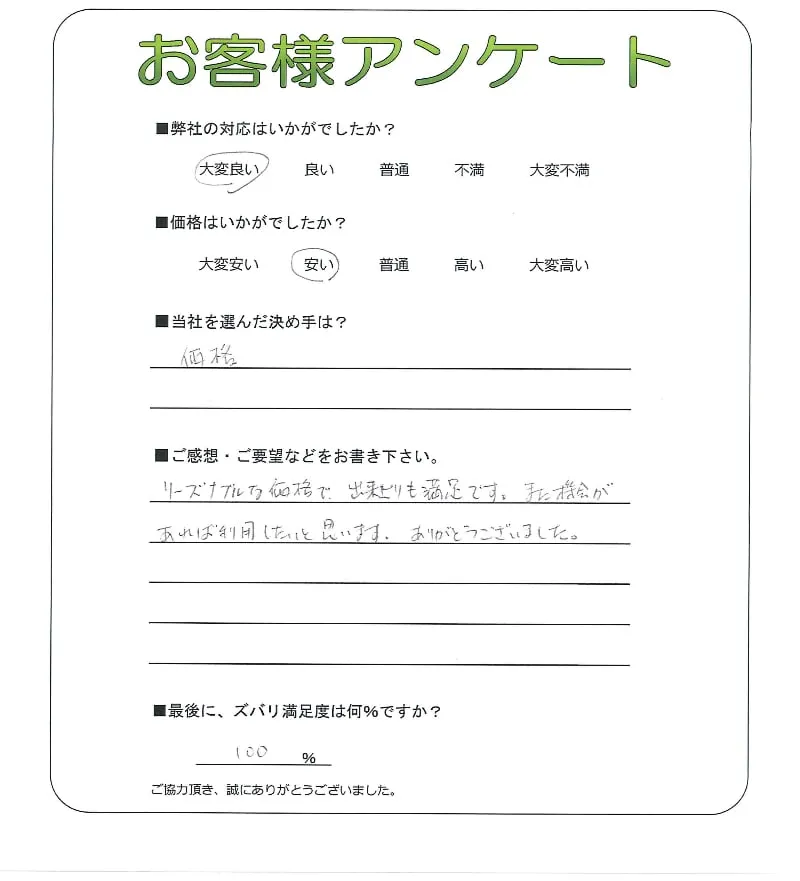 お客様アンケート
■弊社の対応はいかがでしたか？
大変良い 良い 普通 不満 大変不満
■価格はいかがでしたか？
大変安い 安い 普通 高い 大変高い
■当社を選んだ決め手は？
価格
■ご感想・ご要望などをお書き下さい。
リーズナブルな価格で、出来上りも満足です。また機会が
あれば利用したいと思います。ありがとうございました。
■最後に、ズバリ満足度は何%ですか？
100 %
ご協力頂き、誠にありがとうございました。